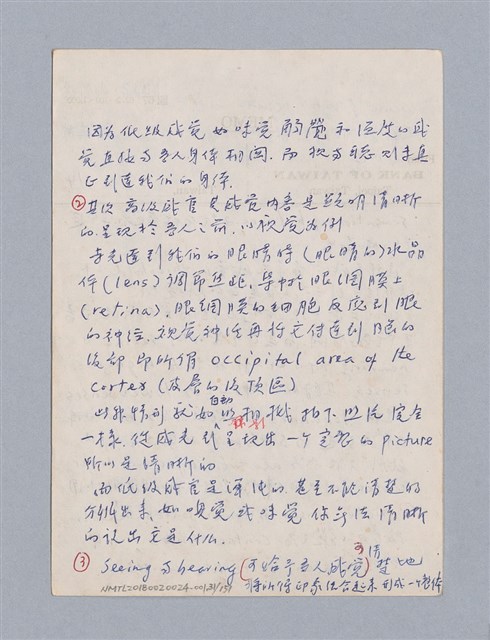 因為低級感覺如味覺觸覺和溫度的感
覺直接與吾人身体相関. 而視與聽則未真
正到達我们的身体.
② 其次高級感官其感覺内容是鮮明清晰
的呈現於吾人之前. 以視覺為例
光達到我们的眼睛時 (眼睛的) 水晶
体 (lens) 調節焦距, 集中於眼網膜上
(retina). 眼網膜的细胞反應到眼
的神经. 視覺神经再将它传達到腦的
後部 即所谓 occipital area of the
cortex (皮層的後頂區)
此种情形就如自動的相機拍下照片完全
一樣. 從感光到呈現出一个完整的 picture
所以是清晰的
而低級感官是渾沌的. 甚至不能清楚的
分析出来. 如嗅覺或味覺 你無法清晰
的说出它是什么.
③ Seeing 與 hearing (可给予吾人感覺) 可清楚地
将所得印象结合起来 形成一个整体
NMTL20180020024-001